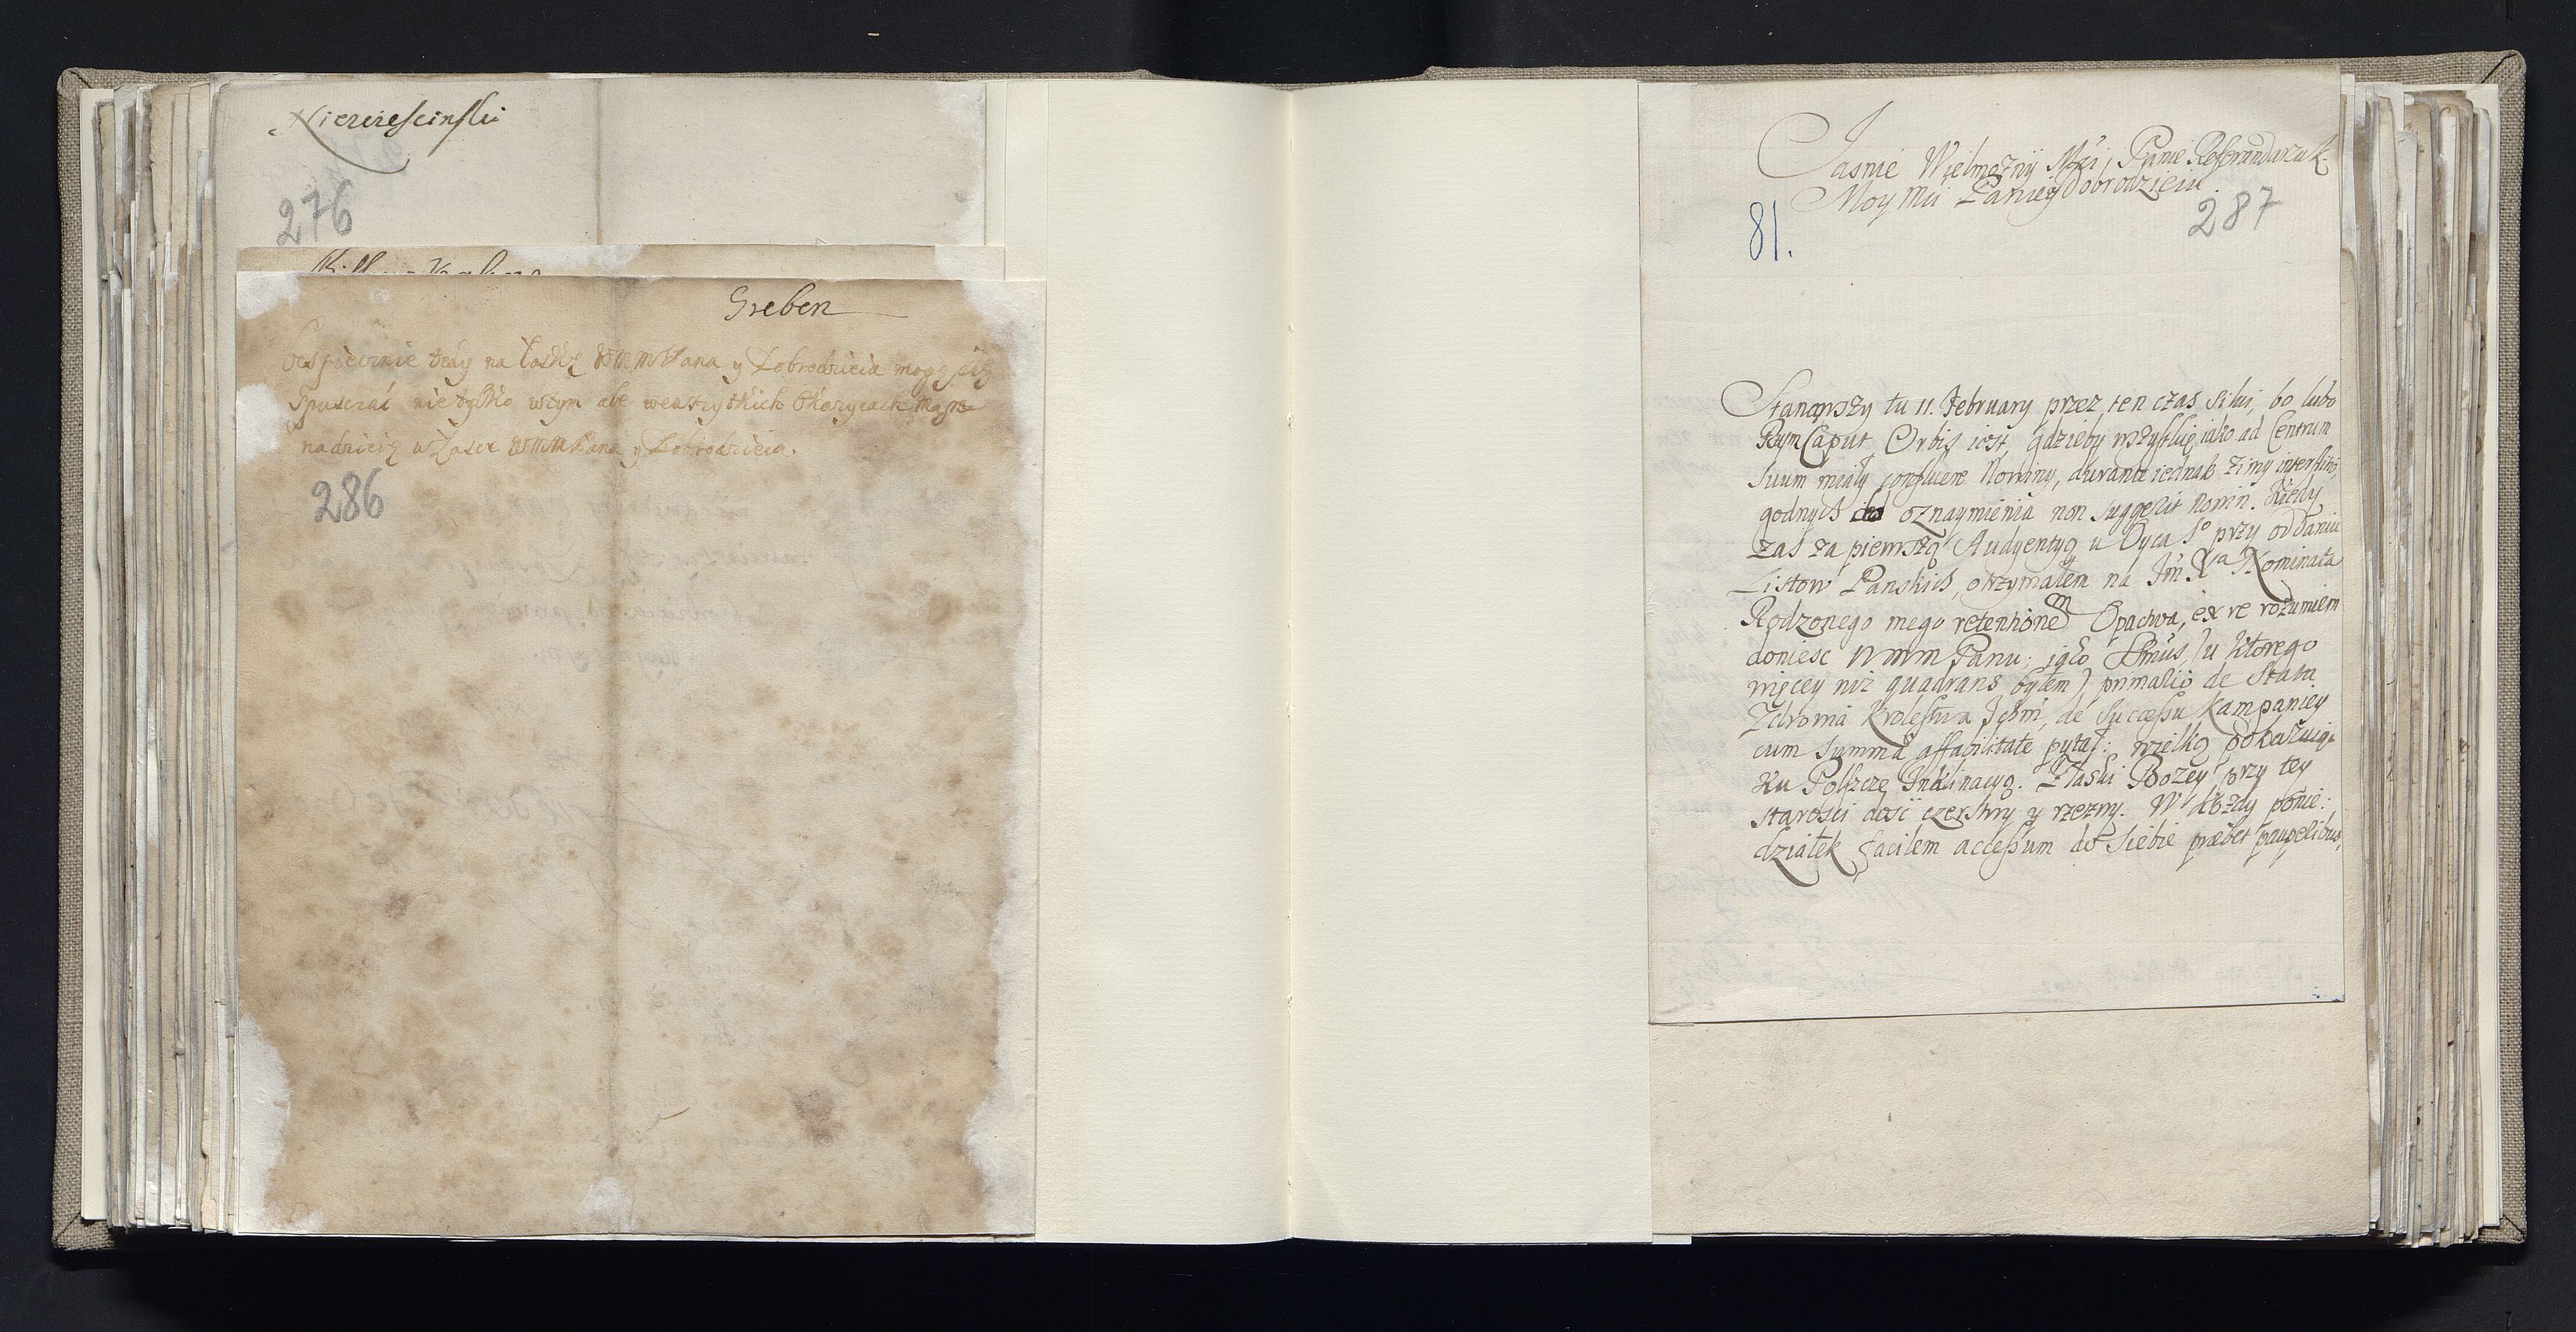 Niezwiescinski
276
Greben
Bespiecznie tedy na łaskę WMMPana y Dobrodzieia mogę się
Spuscrać nie tylko wtym ale wewszytkich Okazycach Maiąc
nadzieię w Łasce WMMPana y Dobrodzieia.
286
Jasnie Wielmozny Mści, Panie Referendarzu K.
Moy Mći Panie y Dobrodzieiu.
81.
287
Stanąwszy tu 11. February przez ten czas silui, bo lubo
Rzym Caput Orbis iest, gdzieby wszytkie, iako ad Centrum
suum miały confluere Nowiny, durante iednak zimy interstitio,
godnych do oznaymienia non suggerit nowin. Kiedy
zas za pierwszą Audyentyą u Oyca S° przy oddaniu
Listow Panskich, otrzymałem na Jm Xa Nominata
Rodzonego mego retentionem Opactwa, ex re rozumiem
doniesc WMM Panu; iako Ssmus (u ktorego
więcey niz quadrans byłem) primario de Statu
Zdrowia Krolestwa Ichm, de Successu Kampaniey
cum summa affabilitate pytał; wielką pokazuiąc
ku Polszcze Inklinacyą. Z łaski Bozey przy tey
starosci dosć czerstwy y rzezwy. W kozdy ponie:
działek facilem accessum do siebie præbet pauperibus,